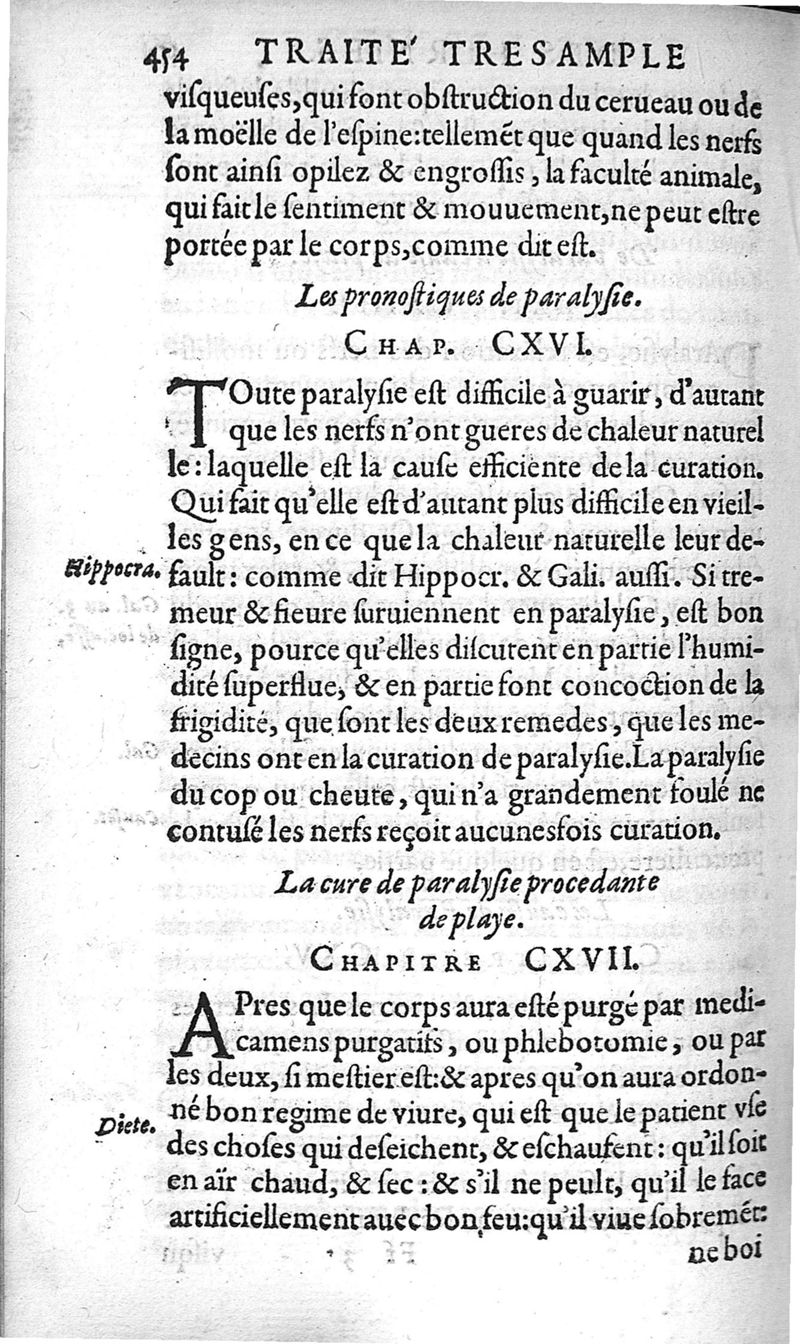 454 TRAITE' TRESAMPLE
viſqueuſes,qui font obſtruction du cerueau ou de
la moëlle de l'eſpine:tellemẽt que quand les nerfs
ſont ainſi opilez & engroſſis, la faculté animale,
qui fait le ſentiment & mouuement,ne peut eſtre
portée par le corps,comme dit eſt.
Les pronoſtiques de paralyſie.
CHAP. CXVI.
TOute paralyſie eſt difficile à guarir, d'autant
que les nerfs n'ont gueres de chaleur naturel
le: laquelle eſt la cauſe efficiente de la curation.
Qui fait qu'elle eſt d'autant plus difficile en vieil-
les gens, en ce que la chaleur naturelle leur de-
Hippocra.
fault: comme dit Hippocr. & Gali. auſſi. Si tre-
meur & fieure ſuruiennent en paralyſie, eſt bon
ſigne, pource qu'elles diſcutent en partie l'humi-
dité ſuperflue, & en partie font concoction de la
frigidité, que ſont les deux remedes, que les me-
decins ont en la curation de paralyſie.La paralyſie
du cop ou cheute, qui n'a grandement foulé ne
contuſé les nerfs reçoit aucunesfois curation.
La cure de paralyſie procedante
de playe.
CHAPITRE CXVII.
APres que le corps aura eſté purgé par medi-
camens purgatifs, ou phlebotomie, ou par
les deux, ſi meſtier eſt:& apres qu'on aura ordon-
Diete.
né bon regime de viure, qui eſt que le patient vſe
des choſes qui deſeichent, & eſchaufent: qu'il ſoit
en aïr chaud, & ſec: & s'il ne peult, qu'il le face
artificiellement auec bon feu:qu'il viue ſobremẽt:
ne boi